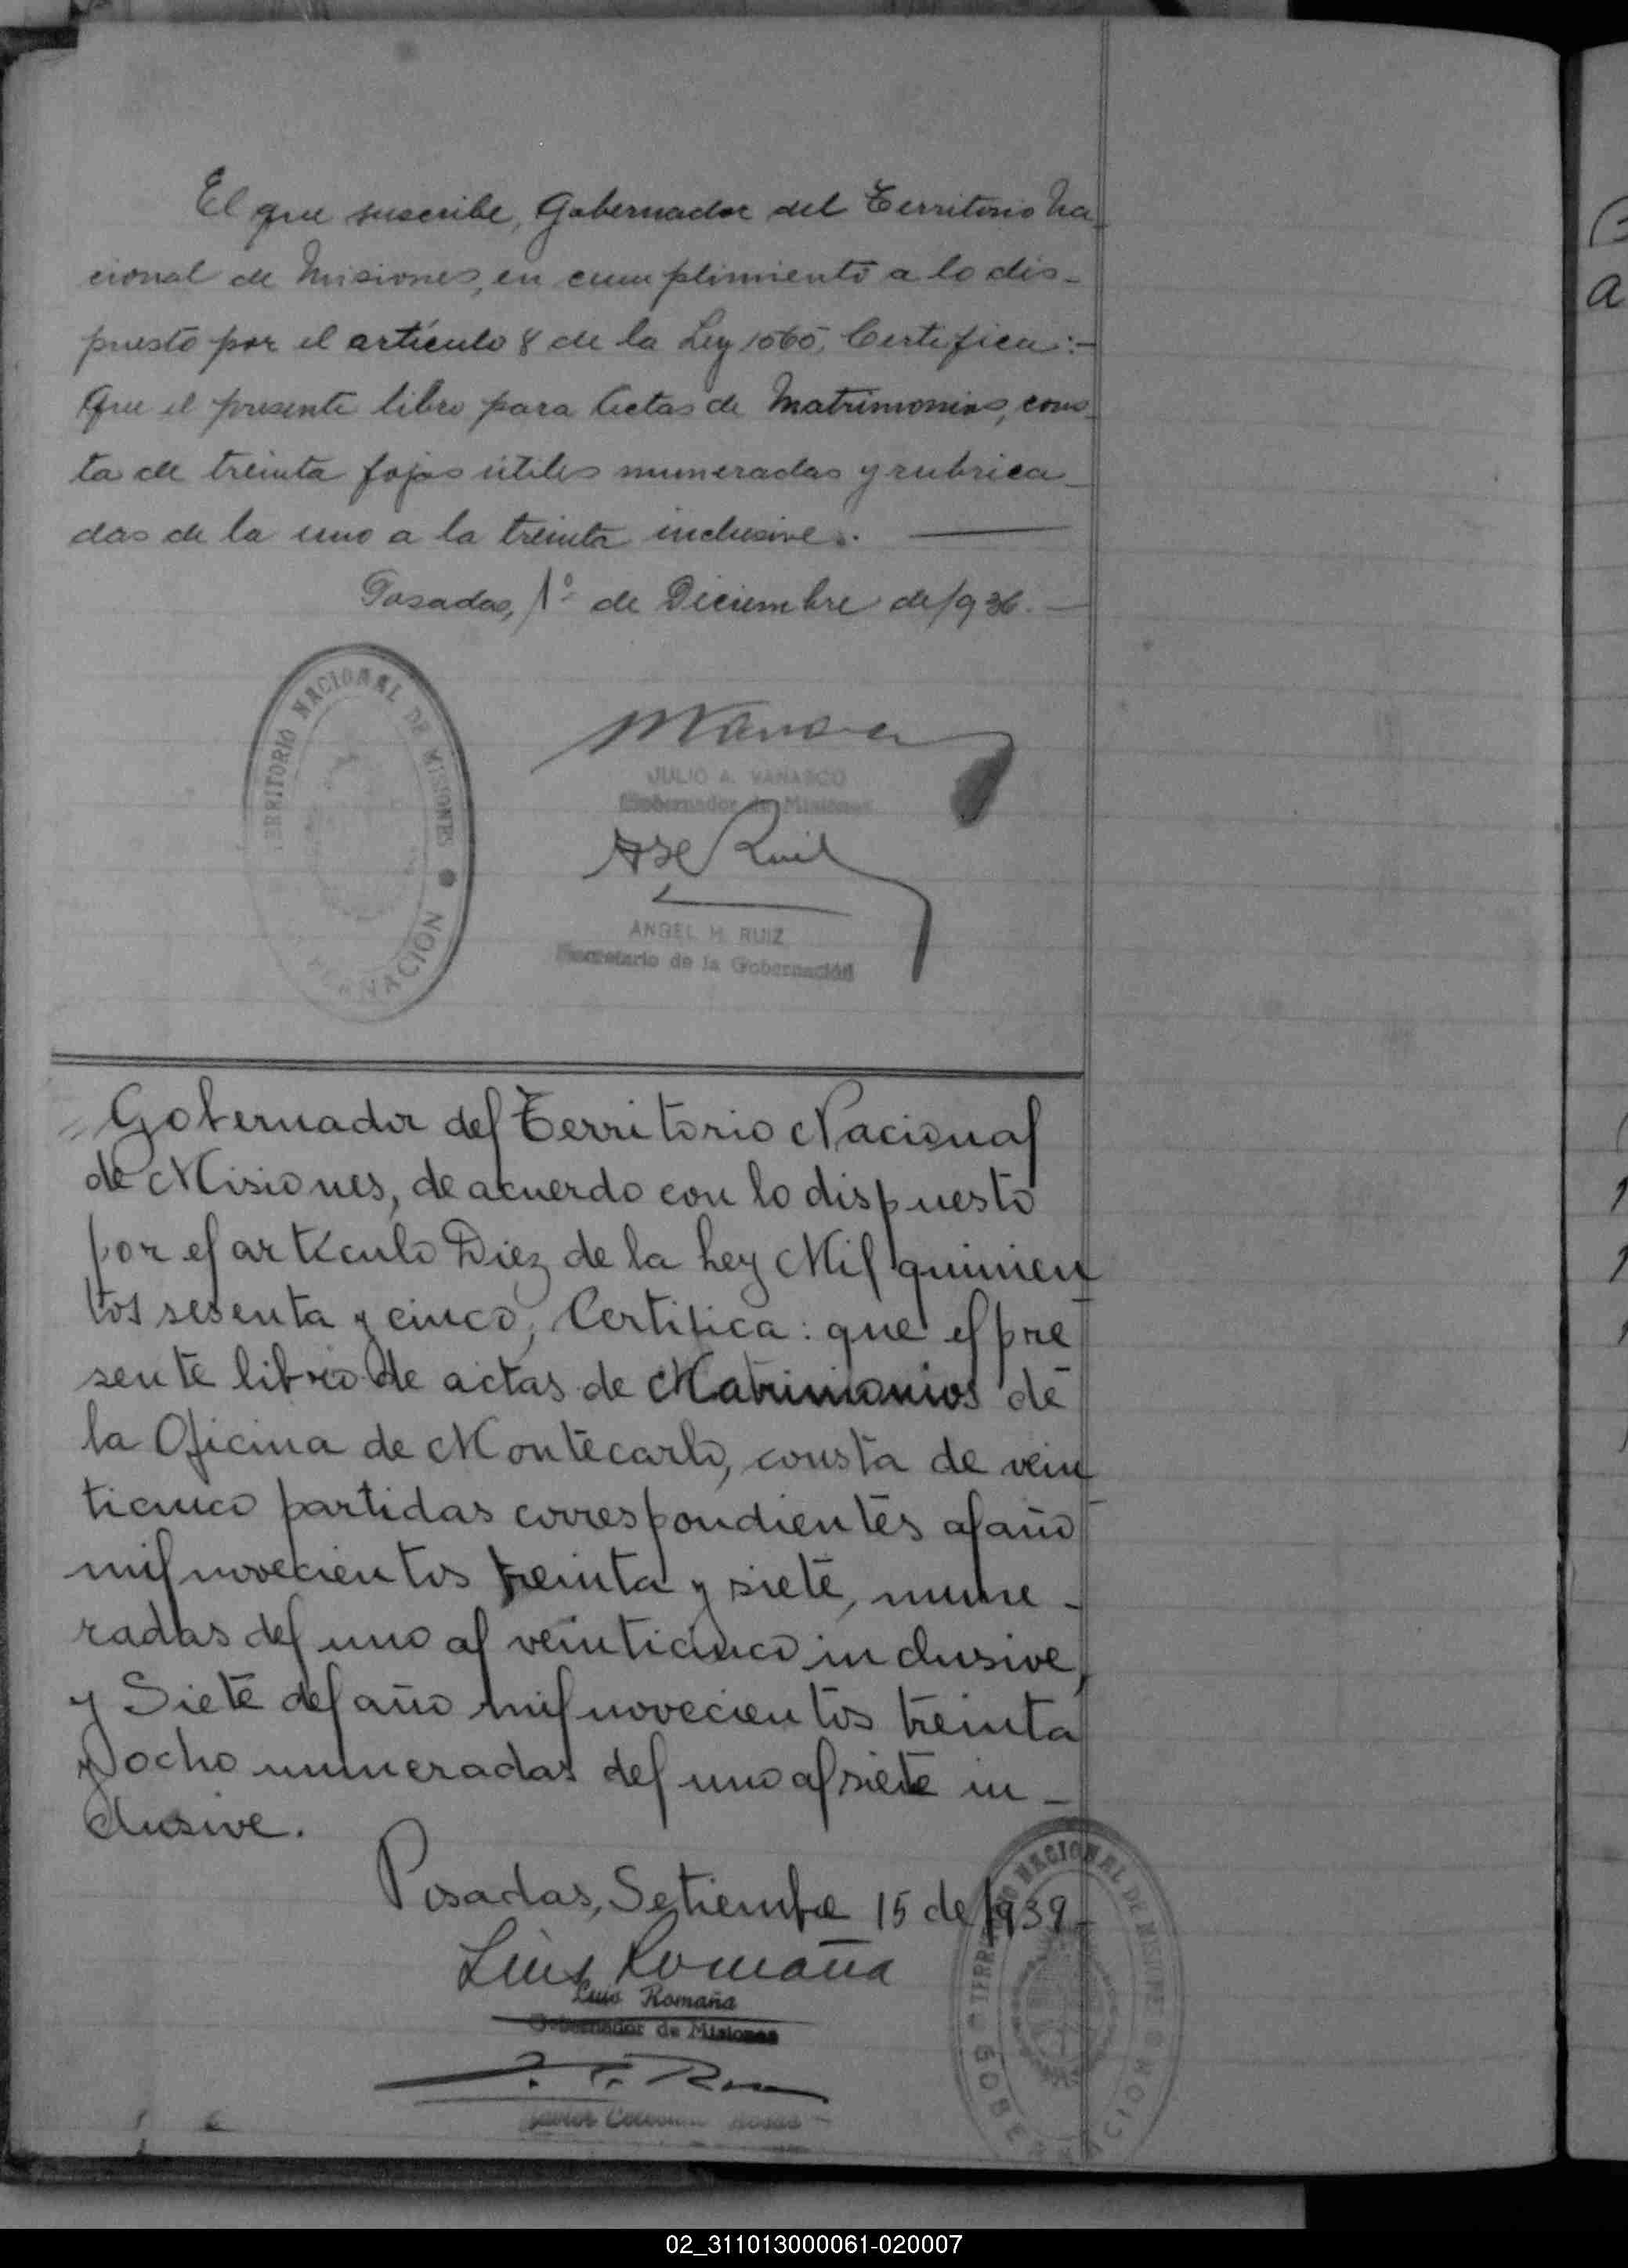 El que suscribe, Gobernador del Territorio Na-
cional de Misiones, en cumplimiento a lo dis-
puesto por el artículo 8 de la Ley 1565, Certifica:-
Que el presente libro para Actas de Matrimonios, cons-
ta de treinta fojas útiles numeradas y rubrica-
das de la uno a la treinta inclusive.
Posadas, 1º de Diciembre de 1936.
TERRITORIO NACIONAL DE MISIONES
GOBERNACION
JULIO A. VANASCO
Gobernador de Misiones
ANGEL H. RUIZ
Secretario de la Gobernación
Gobernador del Territorio Nacional
de Misiones, de acuerdo con lo dispuesto
por el artículo Diez de la Ley Mil quinien
tos sesenta y cinco, Certifica: que el pre
sente libro de actas de Matrimonios de
la Oficina de Montecarlo, consta de vein
ticinco partidas correspondientes al año
mil novecientos treinta y siete, nume-
radas del uno al veinticinco inclusive,
y Siete del año mil novecientos treinta
y ocho numeradas del uno al siete in-
clusive.
Posadas, Setiembre 15 de 1939-
Luis Romaña
Luis Romaña
Gobernador de Misiones
TERRITORIO NACIONAL DE MISIONES
GOBERNACION
02_311013000061-020007